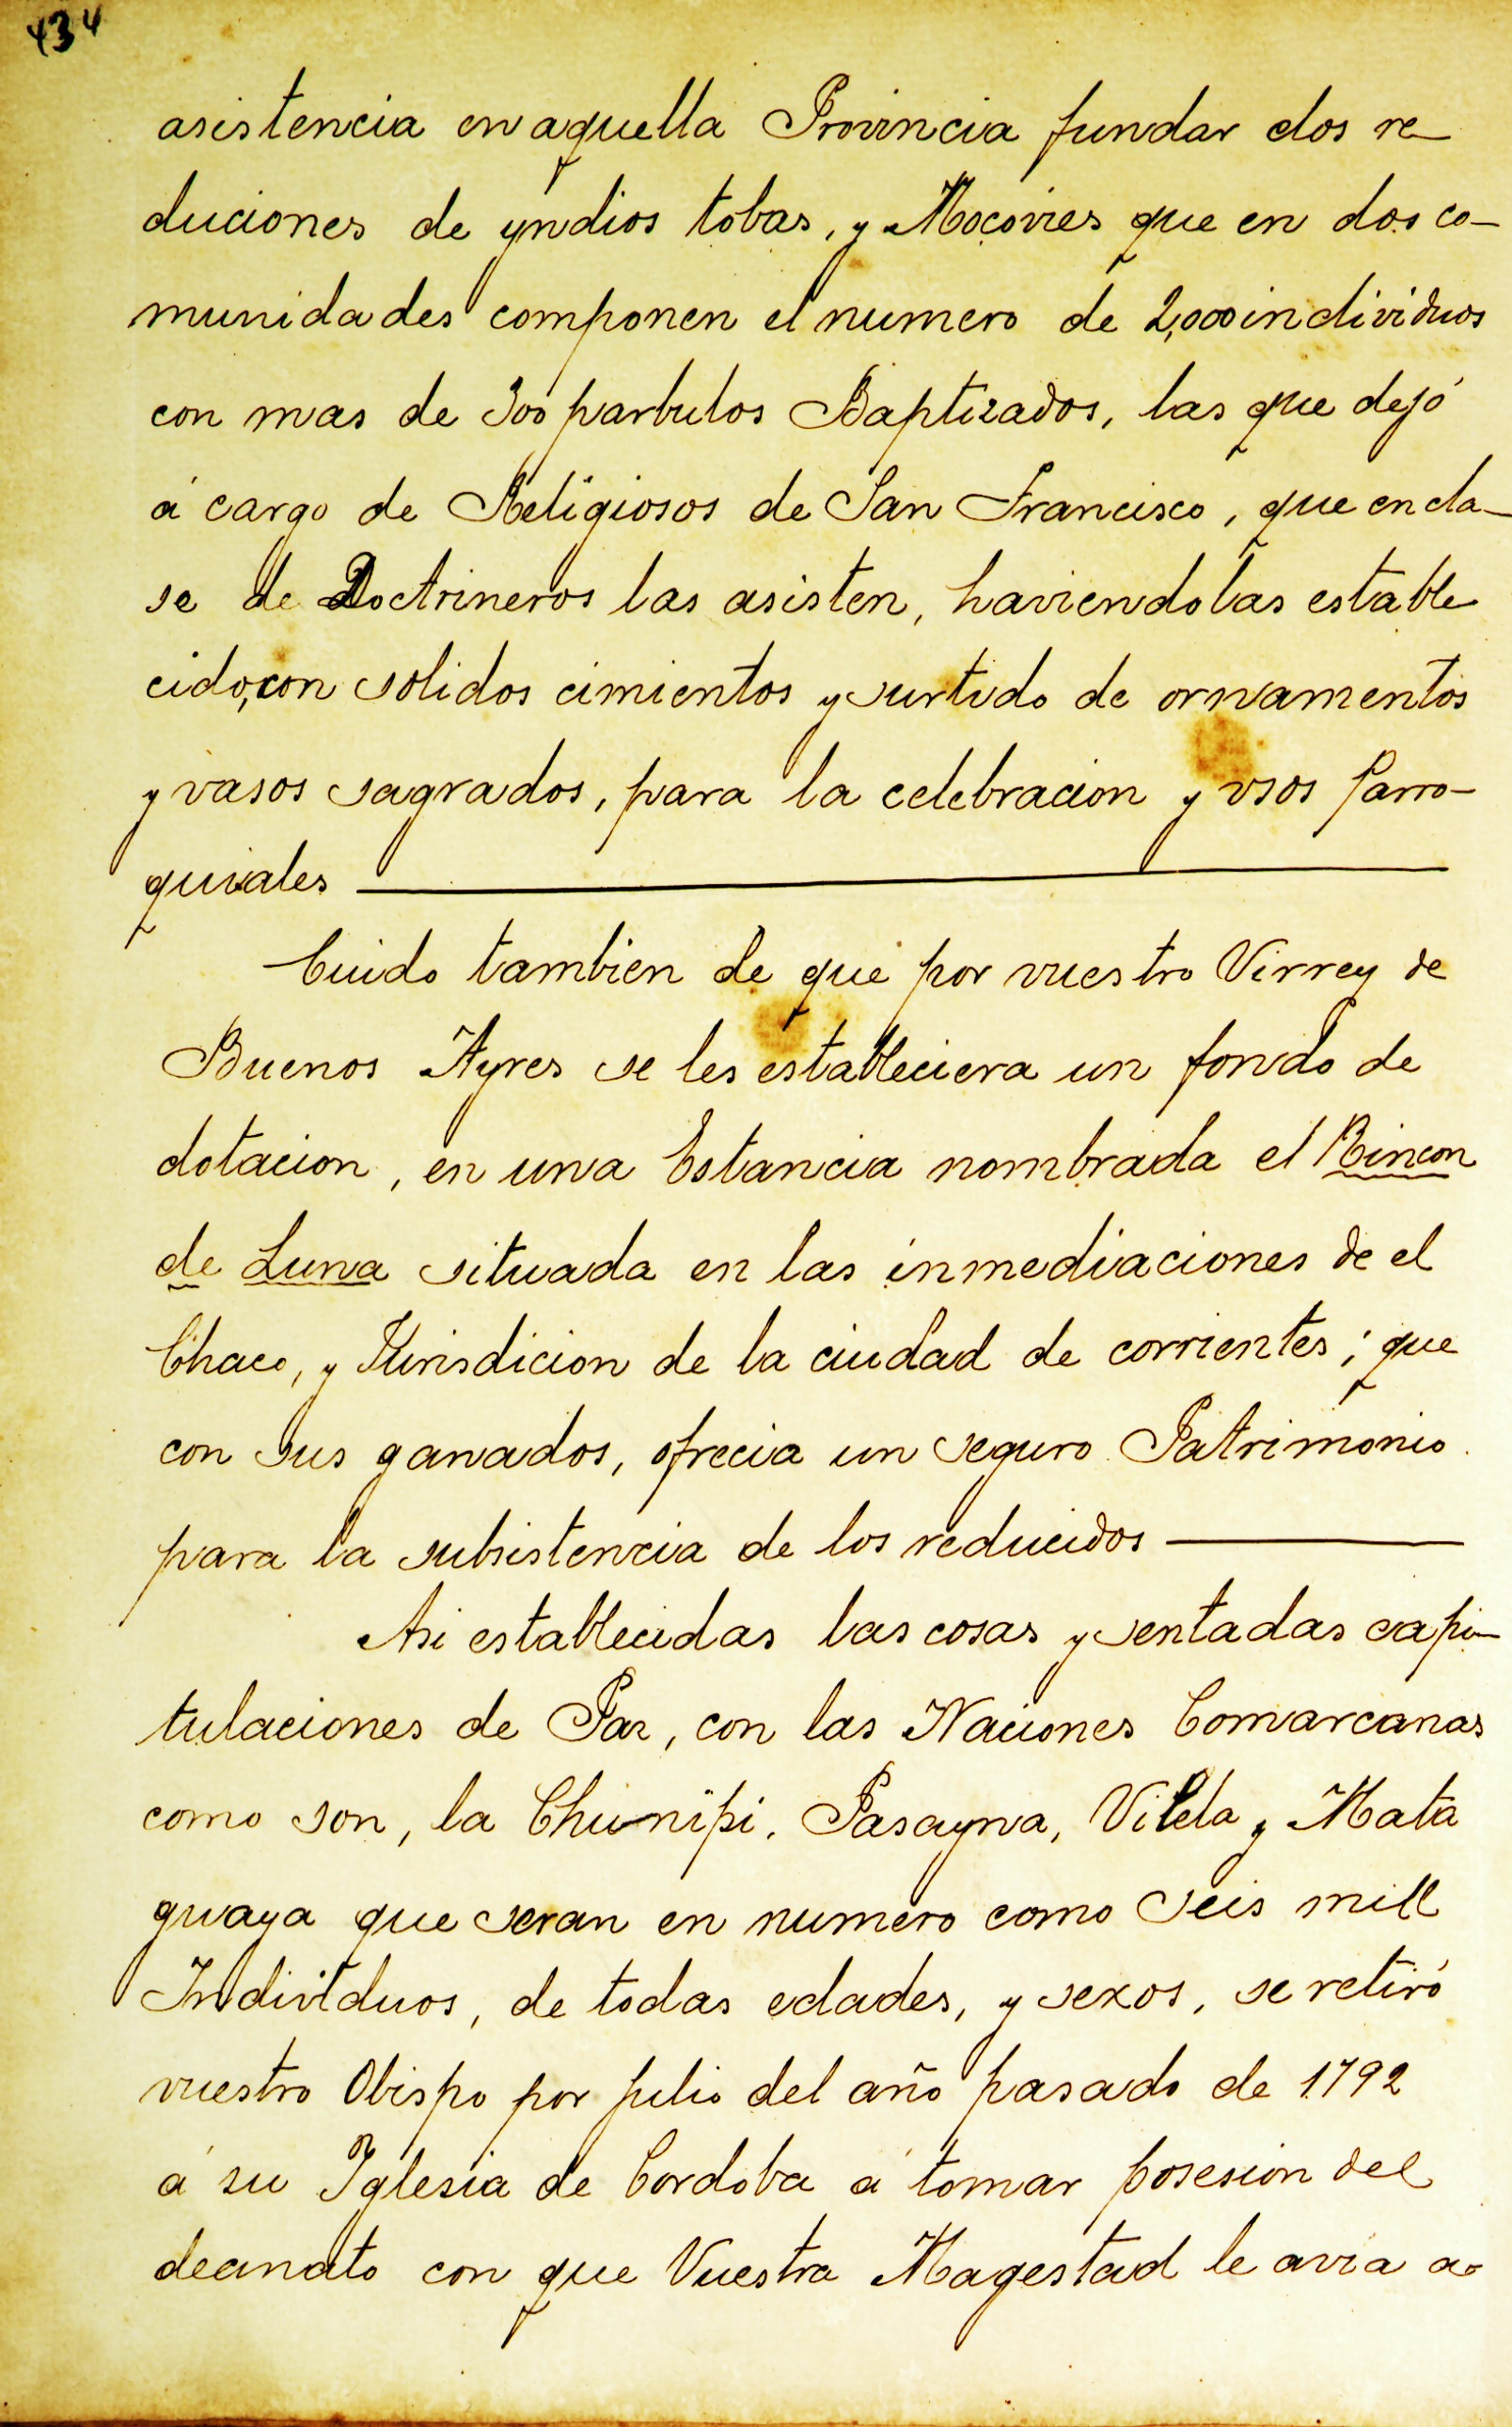 434
asistencia en aquella Provincia fundar dos re-
duciones de yndios tobas, y Mocovies que en dos co-
munidades componen el numero de 2,000 individuos
con mas de 300 parbulos Baptizados, las que dejó
á cargo de Religiosos de San Francisco, que en cla-
se de Doctrineros las asisten, haviendolas estable
cido, con solidos cimientos y surtido de ornamentos
y vasos sagrados, para la celebracion y vsos Parro-
quiales
Cuido tambien de que por vuestro Virrey de
Buenos Ayres se les estableciera un fondo de
dotacion, en una Estancia nombrada el Rincon
de Luna situada en las inmediaciones de el
Chaco, y Jurisdicion de la ciudad de corrientes; que
con sus ganados, ofrecia un seguro Patrimonio
para la subsistencia de los reducidos
Asi establecidas las cosas y sentadas capi-
tulaciones de Paz, con las Naciones Comarcanas
como son, la Chunipi, Pasayna, Vilela y Mata
guaya que seran en numero como seis mill
Individuos, de todas edades, y sexos, se retiró
vuestro Obispo por julio del año pasado de 1792
á su Iglesia de Cordoba á tomar posesion del
deanato con que Vuestra Magestad le avia a-